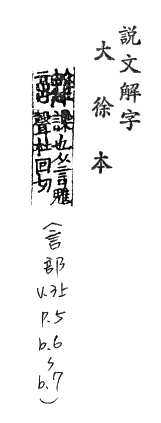 說文解字
大徐本
譟也从言
聲杜回切
(言部 V.3上 P.5 b.6~b.7)